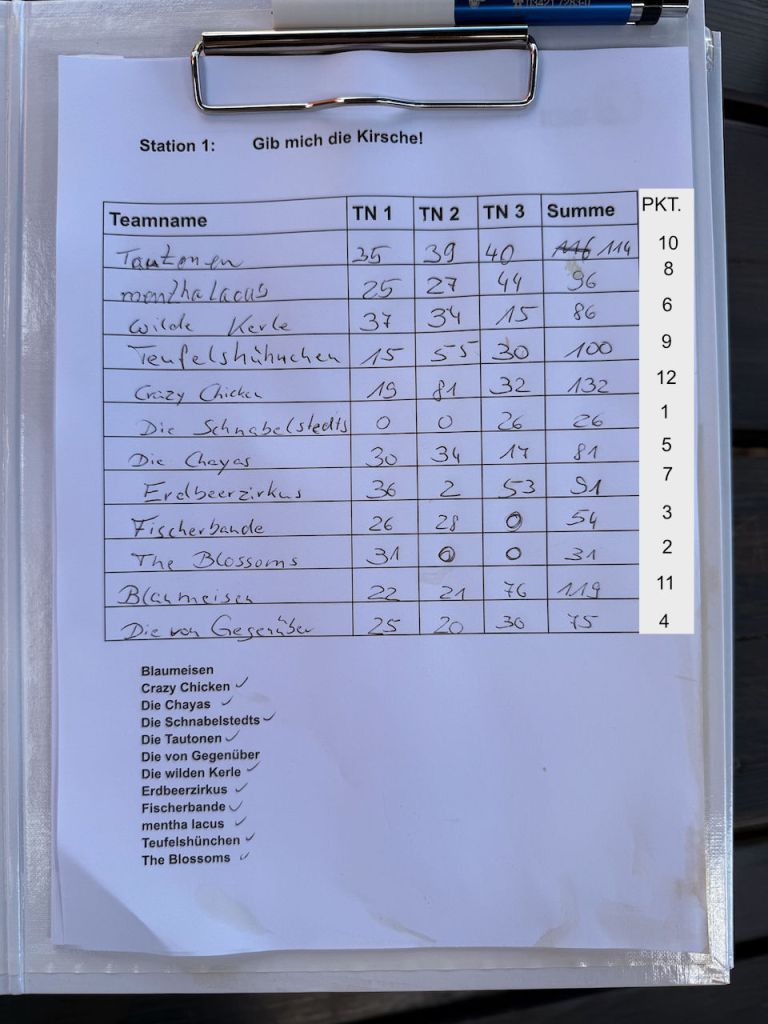 Station 1: Gib mich die Kirsche!
Teamname TN 1 TN 2 TN 3 Summe PKT.
Tautonen 35 39 40 116 114 10
mentha lacus 25 27 44 96 8
Wilde Kerle 37 34 15 86 6
Teufelshühnchen 15 55 30 100 9
Crazy Chicken 19 81 32 132 12
Die Schnabelstedts 0 0 26 26 1
Die Chayas 30 34 17 81 5
Erdbeerzirkus 36 2 53 91 7
Fischerbande 26 28 0 54 3
The Blossoms 31 0 0 31 2
Blaumeisen 22 21 76 119 11
Die von Gegenüber 25 20 30 75 4
Blaumeisen
Crazy Chicken ✓
Die Chayas ✓
Die Schnabelstedts ✓
Die Tautonen ✓
Die von Gegenüber
Die wilden Kerle ✓
Erdbeerzirkus ✓
Fischerbande ✓
mentha lacus ✓
Teufelshünchen ✓
The Blossoms ✓